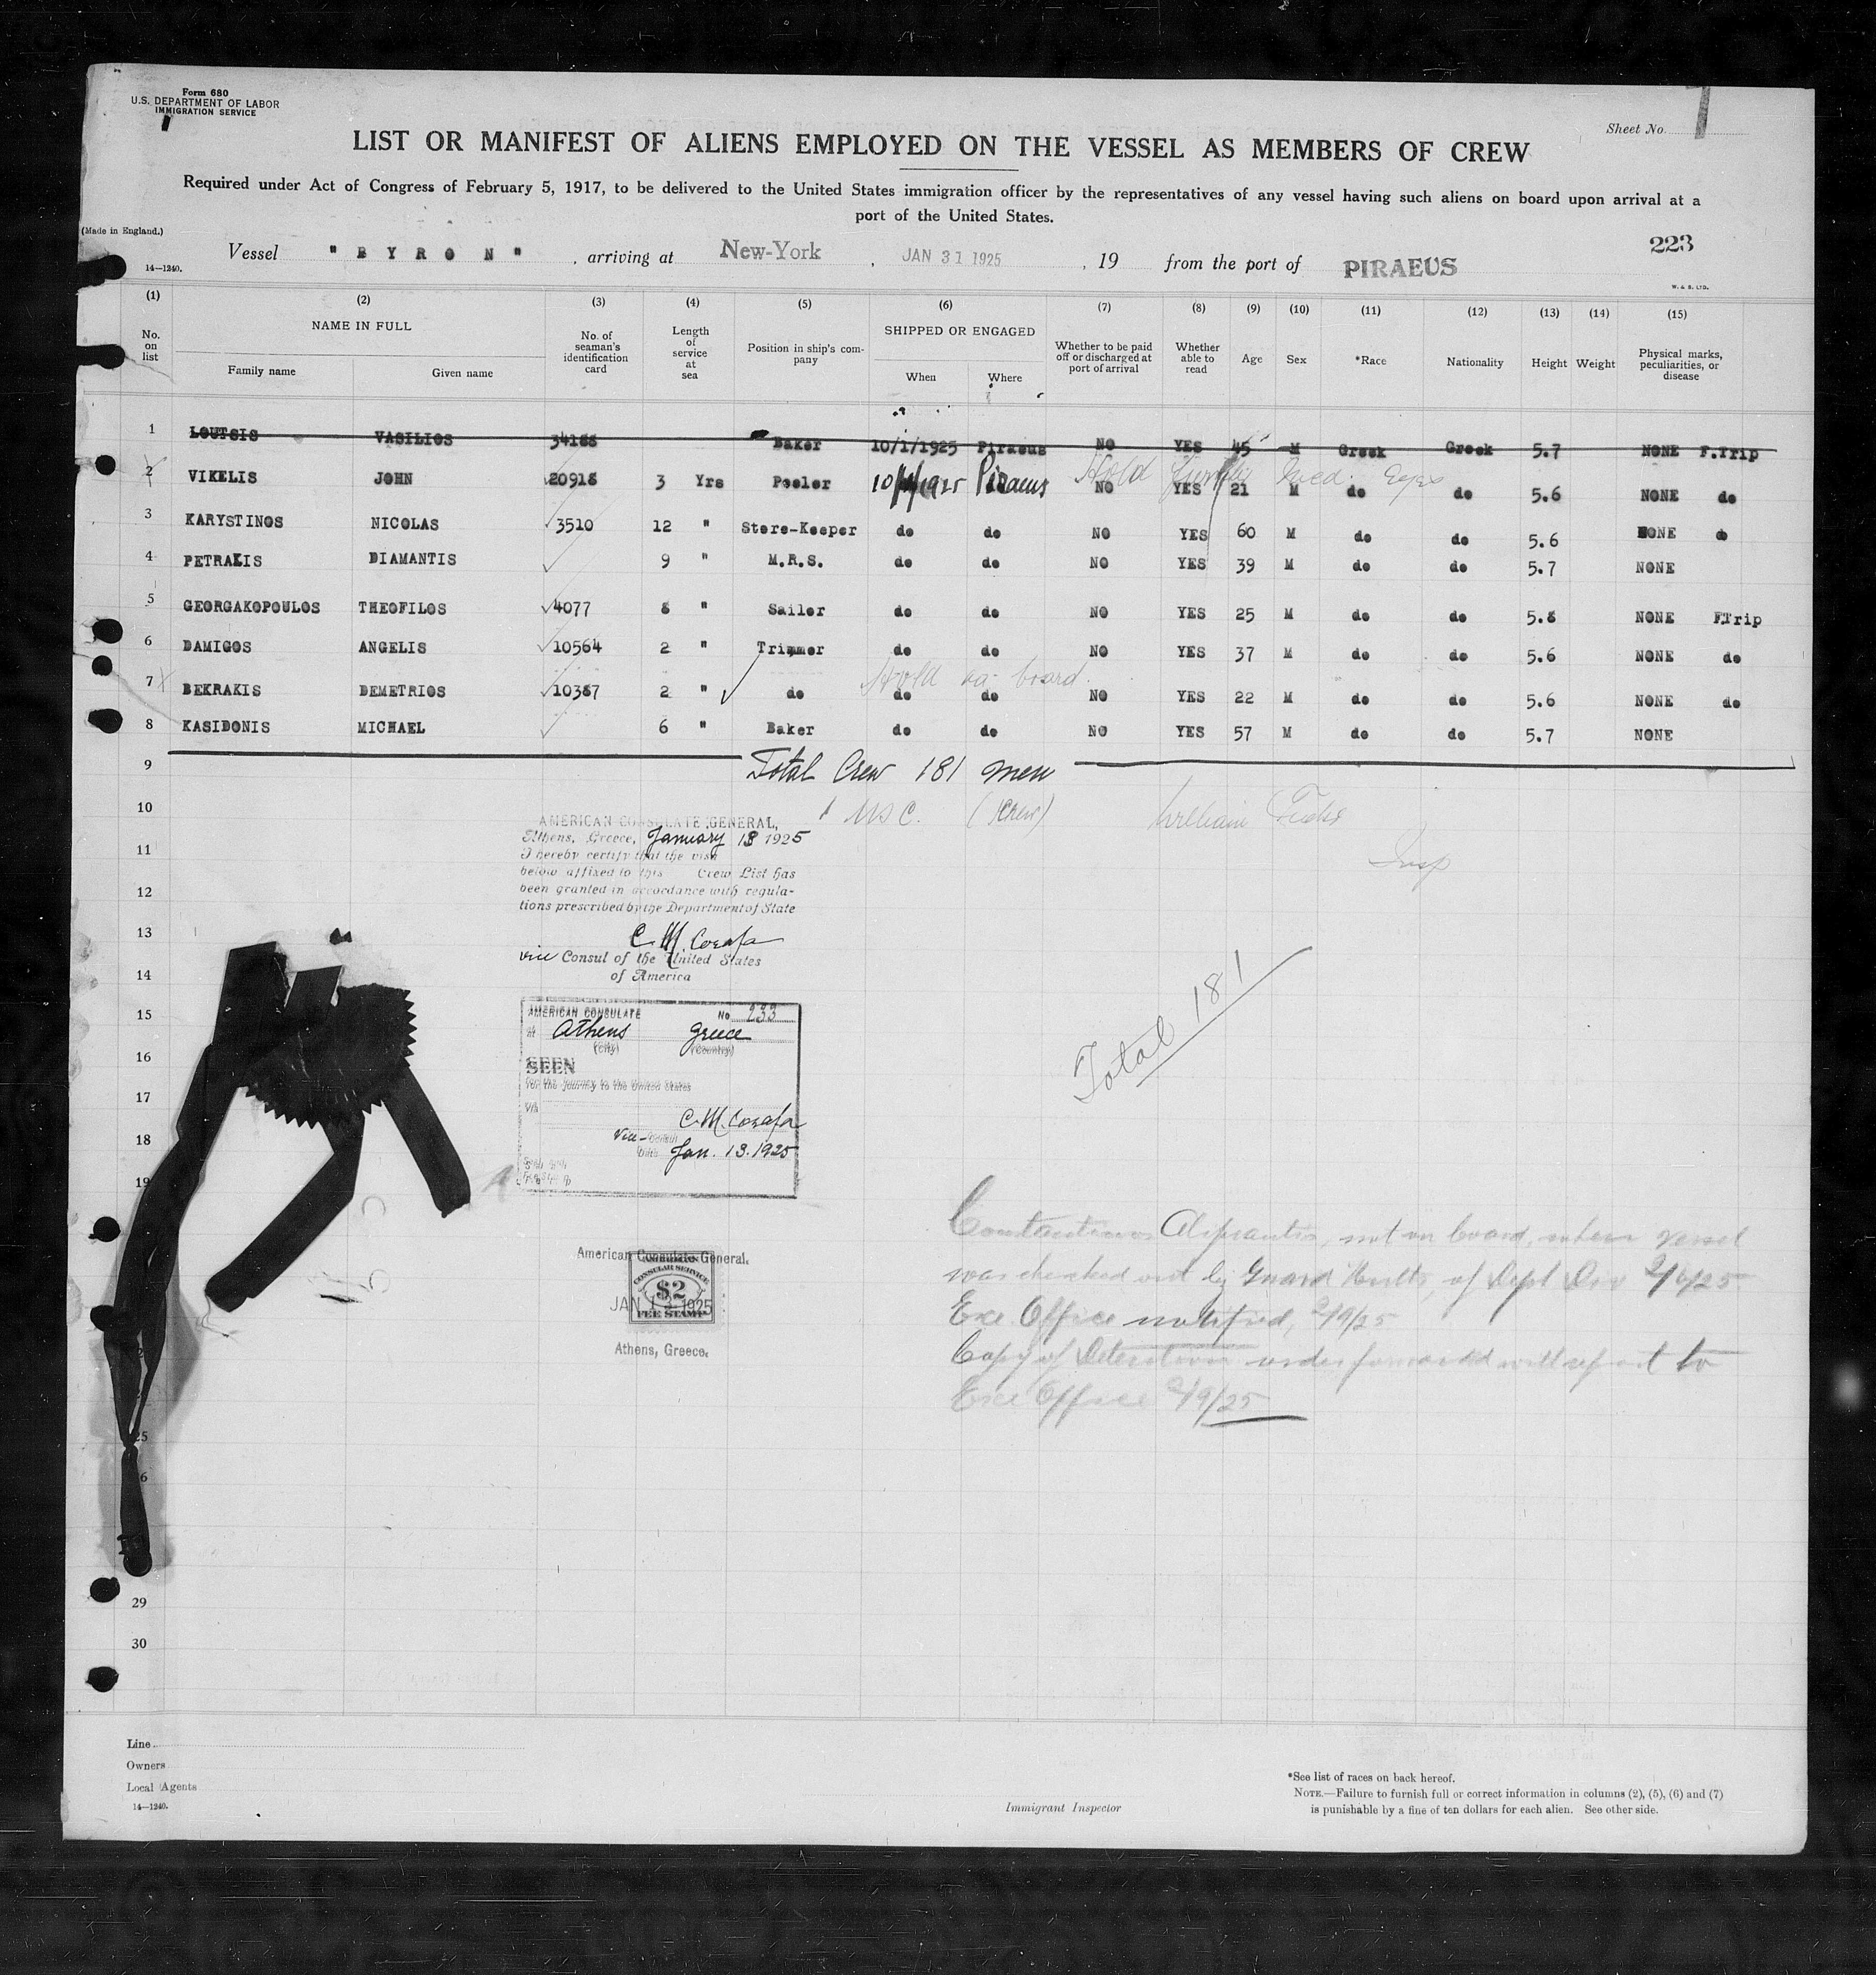 Form 680
U.S. DEPARTMENT OF LABOR
IMMIGRATION SERVICE
Sheet No.
LIST OR MANIFEST OF ALIENS EMPLOYED ON THE VESSEL AS MEMBERS OF CREW
Required under Act of Congress of February 5, 1917, to be delivered to the United States immigration officer by the representatives of any vessel having such aliens on board upon arrival at a
port of the United States.
(Made in England.)
Vessel "BYRON", arriving at New-York, JAN 31 1925, 19 from the port of PIRAEUS
223
14—1240.
W. & S. LTD.
(1) (2) (3) (4) (5) (6) (7) (8) (9) (10) (11) (12) (13) (14) (15)
No. on list NAME IN FULL Family name Given name No. of seaman's identification card Length of service at sea Position in ship's company SHIPPED OR ENGAGED When Where Whether to be paid off or discharged at port of arrival Whether able to read Age Sex *Race Nationality Height Weight Physical marks, peculiarities, or disease
1 LOUTSIS VASILIOS 34188 Baker 10/1/1925 Piraeus NO YES 45 M Greek Greek 5.7 NONE F.Trip
Hold Med. Eyes
2 VIKELIS JOHN 20918 3 Yrs Peeler 10/1/1925 Piraeus NO YES 21 M do do 5.6 NONE do
3 KARYSTINOS NICOLAS 3510 12 " Store-Keeper do do NO YES 60 M do do 5.6 NONE do
4 PETRAKIS DIAMANTIS 9 " M.R.S. do do NO YES 39 M do do 5.7 NONE
5 GEORGAKOPOULOS THEOFILOS 4077 8 " Sailor do do NO YES 25 M do do 5.8 NONE F.Trip
6 DAMIGOS ANGELIS 10564 2 " Trimmer do do NO YES 37 M do do 5.6 NONE do
Hold on board.
7 BEKRAKIS DEMETRIOS 10387 2 " do do do NO YES 22 M do do 5.6 NONE do
8 KASIDONIS MICHAEL 6 " Baker do do NO YES 57 M do do 5.7 NONE
9 Total Crew 181 men
10 1 USC. (Crew) William
11
Insp
12
13
14
15
16
17
18
19
AMERICAN CONSULATE GENERAL,
Athens, Greece, January 13 1925
I hereby certify that the visa
below affixed to this Crew List has
been granted in accordance with regula-
tions prescribed by the Department of State
C. M. Corafa
Vice Consul of the United States
of America
AMERICAN CONSULATE No 233
at Athens Greece
(City) (Country)
SEEN
for the journey to the United States
via
C. M. Corafa
Vice-Consul
Date Jan. 13. 1925
Total 181
American Consulate General.
CONSULAR SERVICE
$2
FEE STAMP
JAN 13 1925
Athens, Greece.
Constantinos Aliprantis, not on board, when vessel
was checked out by Guard of Dept Div 2/6/25
Exe. Office notified, 2/9/25
Copy of Detention order forwarded will report to
Exe Office 2/9/25
25
6
29
30
Line
Owners
Local Agents
14—1240.
Immigrant Inspector
*See list of races on back hereof.
NOTE.—Failure to furnish full or correct information in columns (2), (5), (6) and (7)
is punishable by a fine of ten dollars for each alien. See other side.